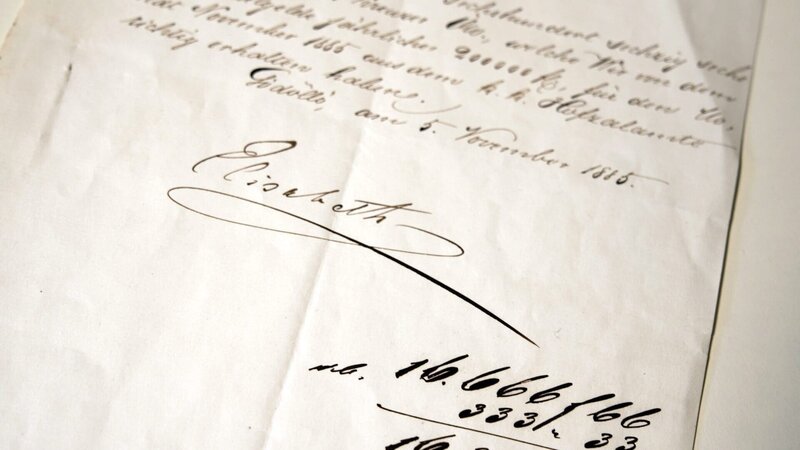 Sechshundert sechzig sechs
welche Wir von dem
jährlicher 200000 fl, für den Mo
nat November 1885 aus dem k. k. Hofzahlamte
richtig erhalten haben.
Gödöllö, am 5. November 1885.
Elisabeth
16.666 f 66
333 " 33